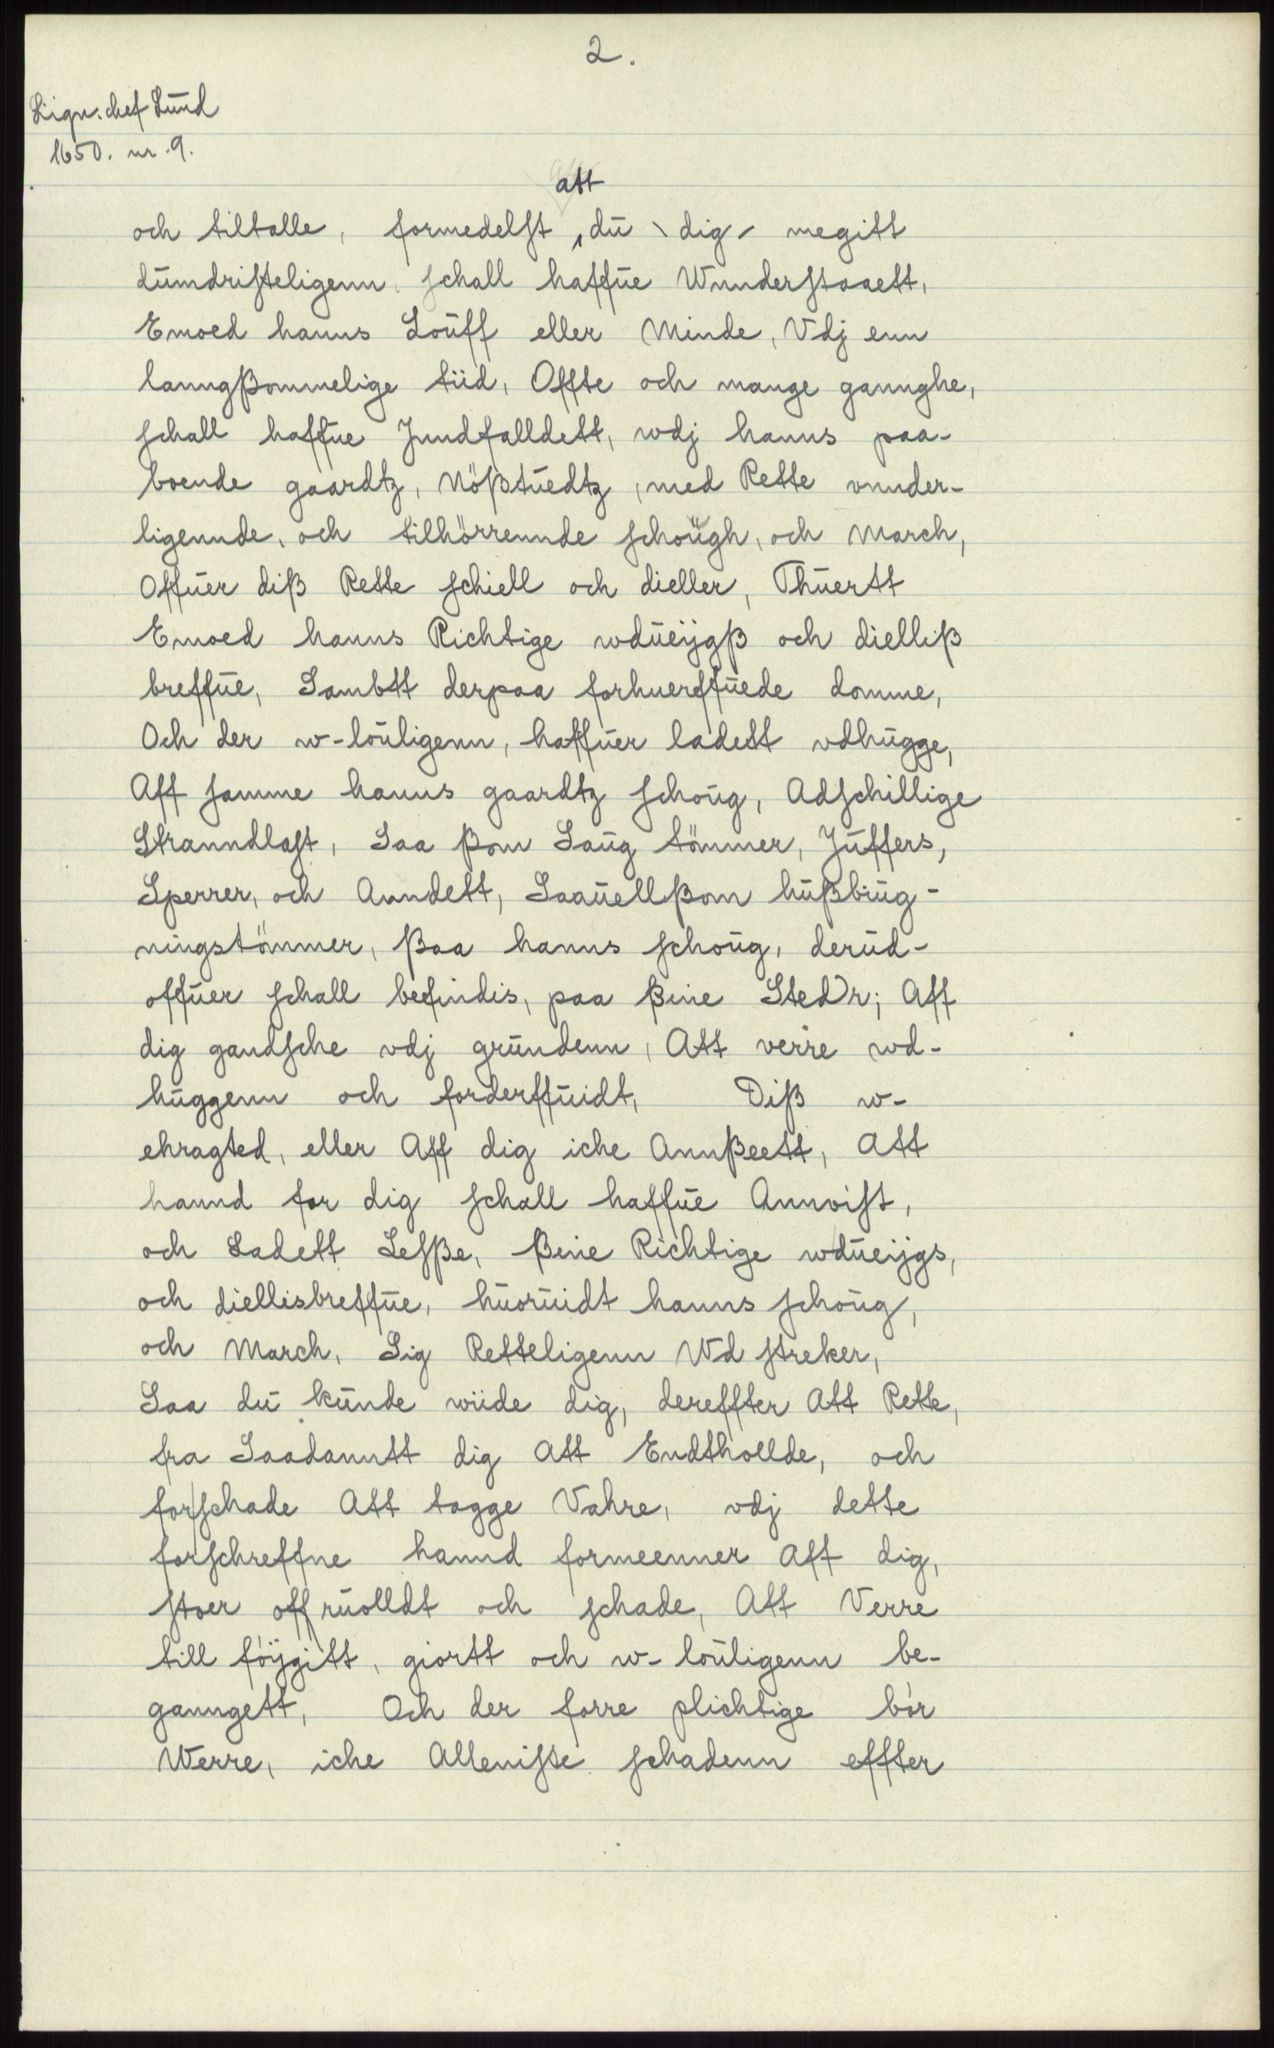 2.
Lign. chef Lund
1650. nr. 9.
att
och tiltalle, formedelst du \ dig / megitt
dumdristeligenn schall haffue Wnnderstaaett,
Emoed hanns Louff eller Minde, Vdj enn
lanngßommelige tiid, Offte och mange gannghe,
schall haffue Jndfalldett, wdj hanns paa-
boende gaardtz, Nößtuedtz, med Rette vnnder-
ligennde, och tilhörrennde schough, och March,
Offuer diß Rette schiell och dieller, Thuertt
Emoed hanns Richtige wdueijgß och dielliß
breffue, Sambtt derpaa forhuerffuede domme,
Och der w-louligenn, haffuer ladett vdhugge,
Aff samme hanns gaardtz schoug, Adschillige
Stranndlast, Saa ßom Saug tömmer, Juffers,
Sperrer, och Anndett, Saauellßom hußbiug-
ningstömmer, ßaa hanns schoug, derud-
offuer schall befindis, paa ßine Steder; Aff
dig gandsche vdj grundenn, Att verre wd-
huggenn och forderffuidt, Diß w-
ehragted, eller Aff dig iche Annßeett, Att
hannd for dig schall haffue Annvist,
och Ladett Lesße, ßine Richtige wdueijgs,
och diellisbreffue, huoruidt hanns schoug,
och March, Sig Retteligenn Wd streker,
Saa du kunde wiide dig, dereffter Att Rette,
fra Saadanntt dig Att Endthollde, och
forschade Att tagge Vahre, vdj dette
forschreffne hannd formeenner Aff dig,
stoer offruolldt och schade, Att Verre
till föijgitt, giortt och w-louligenn be-
ganngett, Och der forre plichtige bör
Werre, iche Alleniste schadenn effter